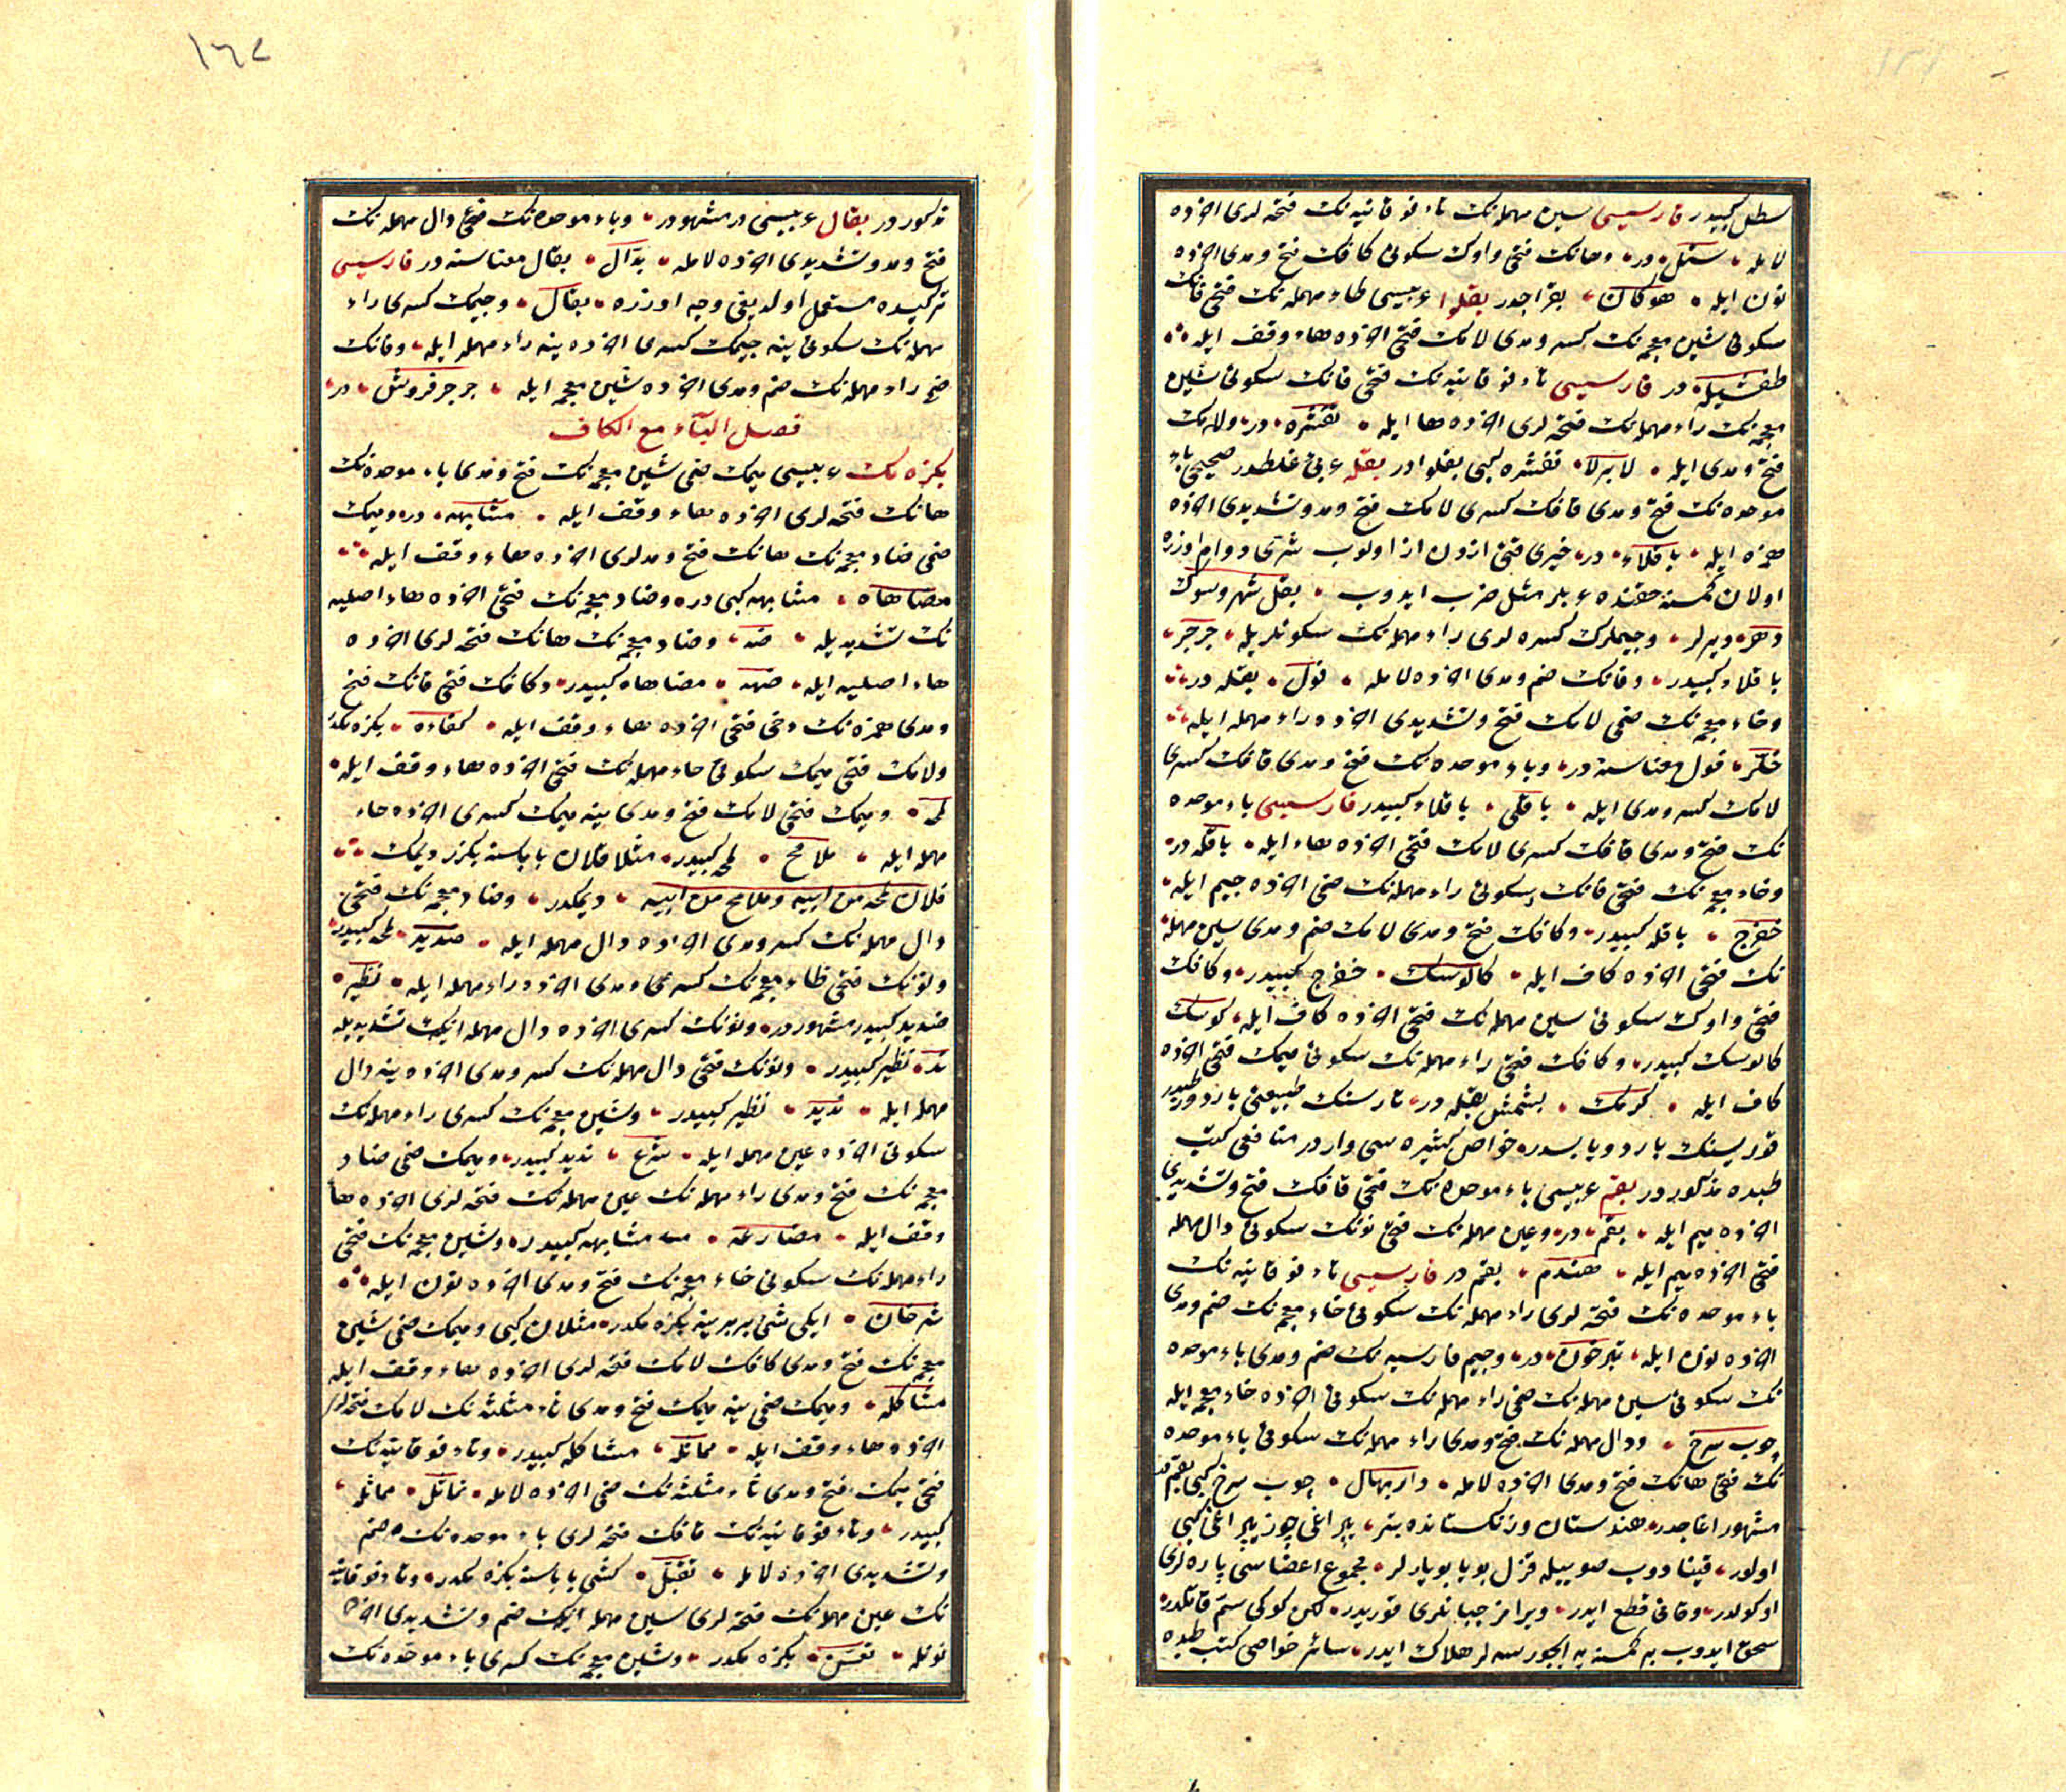 سطل كبيدر فارسيسی سين مهمله نك تاء فوقانيه نك فتحه لری اخرده
لامله ستل در وهانك فتحی واوك سكونی كافك فتح ومدی اخرده
نون ايله هوكان بقراجدر بقلوا عربيسی طاء مهمله نك فتحی فانك
سكونی شين معجمه نك كسر ومدی لامك فتحی اخرده هاء وقف ايله
طفشيله در فارسيسی تاء فوقانيه نك فتحی فانك سكونی شين
معجمه نك راء مهمله نك فتحه لری اخرده ها ايله تفشره در ولامك
فتح ومدی ايله لابرلا تفشره كبی بقلوادر بقله عربی غلطدر صحيحی باء
موحده نك فتح ومدی قافك كسری لامك فتح ومد وتشديدی اخرده
همزه ايله باقلاء در خيری فتحی ازدن از اولوب شرّی دوام اوزره
اولان كمسنه حقنده عربلر مثل ضرب ايدوب بقل شهر وشوك
دهر ديرلر وجيملرك كسره لری راء مهمله نك سكونلريله جرجر
باقلاء كبيدر وفانك ضم ومدی اخرده لامله فول بقله در
وخاء معجمه نك ضمی لامك فتح وتشديدی اخرده راء مهمله ايله
خلّر فول معناسنه در وباء موحده نك فتح ومدی قافك كسری
لامك كسر ومدی ايله باقلی باقلاء كبيدر فارسيسی باء موحده
نك فتح ومدی قافك كسری لامك فتحی اخرده هاء ايله باقله در
وخاء معجمه نك فتحی فانك سكونی راء مهمله نك ضمی اخرده جيم ايله
خفرج باقله كبيدر وكافك فتح ومدی لامك ضم ومدی سين مهمله
نك فتحی اخرده كاف ايله كالوسك خفرج كبيدر وكافك
فتحی واوك سكونی سين مهمله نك فتحی اخرده كاف ايله كوسك
كالوسك كبيدر وكافك فتحی راء مهمله نك سكونی ميمك فتحی اخرده
كاف ايله كرمك بشمش بقله در تارسنك طبيعتی بارد ورطبدر
قوريسنك بارد ويابسدر خواص كثيره سی واردر منافعی كتب
طبده مذكوردر بقم عربيسی باء موحده نك فتحی قافك فتح وتشديدی
اخرده ميم ايله بقم در وعين مهمله نك فتحی نونك سكونی دال مهمله
فتحی اخرده ميم ايله عندم بقم در فارسيسی تاء فوقانيه نك
باء موحده نك فتحه لری راء مهمله نك سكونی خاء معجمه نك ضم ومدی
اخرده نون ايله تبرخون در وجيم فارسيه نك ضم ومدی باء موحده
نك سكونی سين مهمله نك ضمی راء مهمله نك سكونی اخرده خاء معجمه ايله
چوب سرخ ودال مهمله نك فتح ومدی راء مهمله نك سكونی باء موحده
نك فتحی هانك فتح ومدی اخرده لامله داربهال چوب سرخ كبی بقم
مشهور اغاجدر هندوستان وزنكستانده بتر
اولور قينادوب صوييله قزل بويا بويارلر مجموع اعضاسی ياره لری
اوكولدر وقانی قطع ايدر ويرامز چبانلری قوريدر لكن كوكی سمّ قاتلدر
سحق ايدوب بر كمسنه يه ايچورسه لر هلاك ايدر سائر خواصی كتب طبده
١٦٧
مذكوردر بقال عربيسی در مشهوردر وباء موحده نك فتحی دال مهمله نك
فتح ومد وتشديدی اخرده لامله بدّال بقال معناسنه در فارسيسی
تركيده مستعمل اولديغی وجه اوزره بقال وجيمك كسری راء
مهمله نك سكونی ينه جيمك كسری اخرده ينه راء مهمله ايله وفانك
فتح راء مهمله نك ضم ومدی اخرده شين معجمه ايله جرجر فروش در
فصل الباء مع الكاف
بكزه مك عربيسی ميمك ضمی شين معجمه نك فتح ومدی باء موحده نك
هانك فتحه لری اخرده هاء وقف ايله مشابهه در وميمك
ضمی ضاد معجمه نك هانك فتح ومدلری اخرده هاء وقف ايله
مضاهاه مشابهه كبی در وضاد معجمه نك فتحی اخرده هاء اصليه
نك تشديديله ضه وضاد معجمه نك هانك فتحه لری اخرده
هاء اصليه ايله ضهه مضاهاه كبيدر وكافك فتحی فانك فتح
ومدی همزه نك دخی فتحی اخرده هاء وقف ايله كفاءه بكزه مكدر
ولامك فتحی ميمك سكونی حاء مهمله نك فتحی اخرده هاء وقف ايله
لمحه وميمك فتحی لامك فتح ومدی ينه ميمك كسری اخرده حاء
مهمله ايله ملامح لمحه كبيدر مثلا فلان باباسنه بكزر ديمك
فلان لمحه من ابيه وملامح من ابيه ديمكدر وضاد معجمه نك فتحی
دال مهمله نك كسر ومدی اخرده دال مهمله ايله ضديد لمحه كبيدر
ونونك فتحی ظاء معجمه نك كسری ومدی اخرده راء مهمله ايله نظير
ضديد كبيدر مشهوردر ونونك كسری اخرده دال مهمله ايك تشديديله
ندّ نظير كبيدر ونونك فتحی دال مهمله نك كسر ومدی اخرده ينه دال
مهمله ايله نديد نظير كبيدر وشين معجمه نك كسری راء مهمله نك
سكونی اخرده عين مهمله ايله شرع نديد كبيدر وميمك ضمی ضاد
معجمه نك فتح ومدی راء مهمله نك عين مهمله نك فتحه لری اخرده هاء
وقف ايله مضارعه مشابهه كبيدر وشين معجمه نك فتحی
راء مهمله نك سكونی خاء معجمه نك فتح ومدی اخرده نون ايله
شرخان ايكی شیء بربرينه بكزه مكدر مثلان كبی وميمك ضمی شين
معجمه نك فتح ومدی كافك لامك فتحه لری اخرده هاء وقف ايله
مشاكله وميمك ضمی ينه ميمك فتح ومدی ثاء مثلثه نك لامك فتحه لری
اخرده هاء وقف ايله مماثله مشاكله كبيدر وتاء فوقانيه نك
فتحی ميمك فتح ومدی ثاء مثلثه نك ضمی اخرده لامله تماثل مماثله
كبيدر وتاء فوقانيه نك قافك فتحه لری باء موحده نك ضم
وتشديدی اخرده لامله تقبّل كشی باباسنه بكزه مكدر وتاء فوقانيه
نك عين مهمله نك فتحه لری سين مهمله ايك ضم وتشديدی اخرده
نونله تعسّن بكزه مكدر وشين معجمه نك كسری باء موحده نك